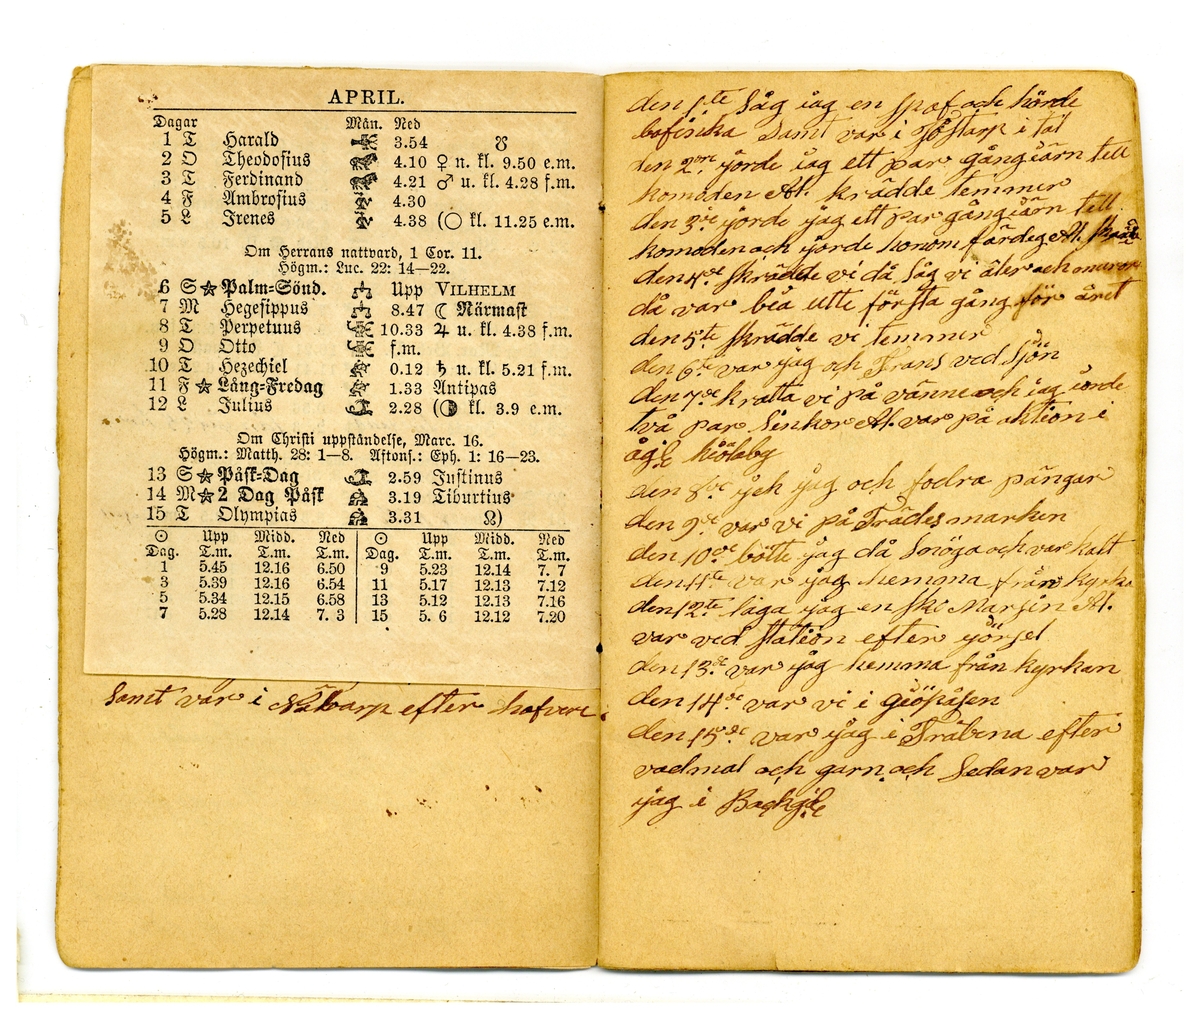 APRIL.
Dagar Mån. Ned
1 T Harald 3.54 ☋
2 O Theodosius 4.10 ♀ n. kl. 9.50 e.m.
3 T Ferdinand 4.21 ♂ u. kl. 4.28 f.m.
4 F Ambrosius 4.30
5 L Irenes 4.38 (○ kl. 11.25 e.m.
Om Herrans nattvard, 1 Cor. 11.
Högm.: Luc. 22: 14—22.
6 S ☆ Palm=Sönd. Upp VILHELM
7 M Hegesippus 8.47 ☾ Närmast
8 T Perpetuus 10.33 ♃ u. kl. 4.38 f.m.
9 O Otto f.m.
10 T Hezechiel 0.12 ♄ u. kl. 5.21 f.m.
11 F ☆ Lång=Fredag 1.33 Antipas
12 L Julius 2.28 (◑ kl. 3.9 e.m.
Om Christi uppståndelse, Marc. 16.
Högm.: Matth. 28: 1—8. Aftons.: Eph. 1: 16—23.
13 S ☆ Påsk=Dag 2.59 Justinus
14 M ☆ 2 Dag Påsk 3.19 Tiburtius
15 T Olympias 3.31 ☊)
☉ Upp Midd. Ned ☉ Upp Midd. Ned
Dag. T.m. T.m. T.m. Dag. T.m. T.m. T.m.
1 5.45 12.16 6.50 9 5.23 12.14 7. 7
3 5.39 12.16 6.54 11 5.17 12.13 7.12
5 5.34 12.15 6.58 13 5.12 12.13 7.16
7 5.28 12.14 7. 3 15 5. 6 12.12 7.20
Samt var i Näbarp efter hafvere
den 1te Såg iag en Spof och hörde
bofinka Samt var i i tal
den 2dre jorde iag ett par gångiärn tell
komoden Al. krädde temmer
den 3de jorde jag ett par gångiärn tell
komoden och jorde honom färdeg Al.
den 4de skrädde vi då Såg vi äler och
då var bia utte första gång för året
den 5te skrädde vi temmer
den 6te var jag och Frans ved Sjön
den 7de kratta vi på vänne och iag iorde
två par Senkor Al. var på aktion i

den 8de jek jag och fodra pängar
den 9de var vi på Trädes marken
den 10de bötte jag då Snöga och var kalt
den 11te var jag hemma från kyrka
den 12te laga jag en Marsin Al.
var ved Station efter görsel
den 13de var jag hemma från kyrkan
den 14de var vi i
den 15de var jag i Träbena efter
vadmal och garn och Sedan var
jag i